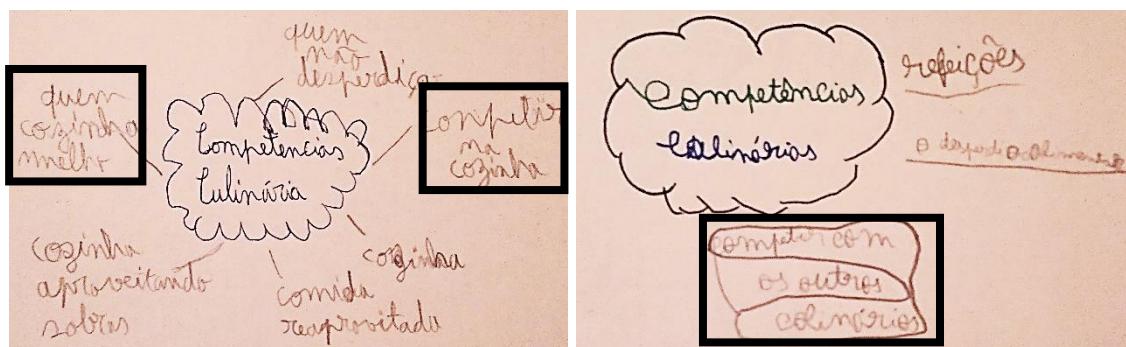 quem
não
desperdiça
quem
cozinha
melho
Competencias
Culinária
conpetir
na
cozinha
cozinha
aproveitando
sobras
comida
reaprovitada
cozinha
Competências
Colinárias
refeições
o
competir com
os outros
colinários